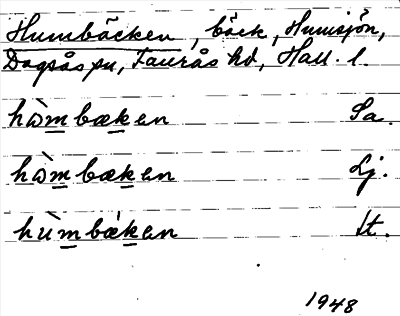 Humbäcken, bäck, Humsjön,
Dagsås sn, Faurås hd, Hall. l.
hòmbæken Sa.
hòmbæken Lj.
hùmbæken St.
1948